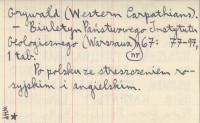 Grywałd (Western Carpathians).
— Biuletyn Państwowego Instytutu
Geologicznego (Warszawa) 67: 77-99,
1 tab. nr
Po polsku ze streszczeniem ro-
syjskim i angielskim.